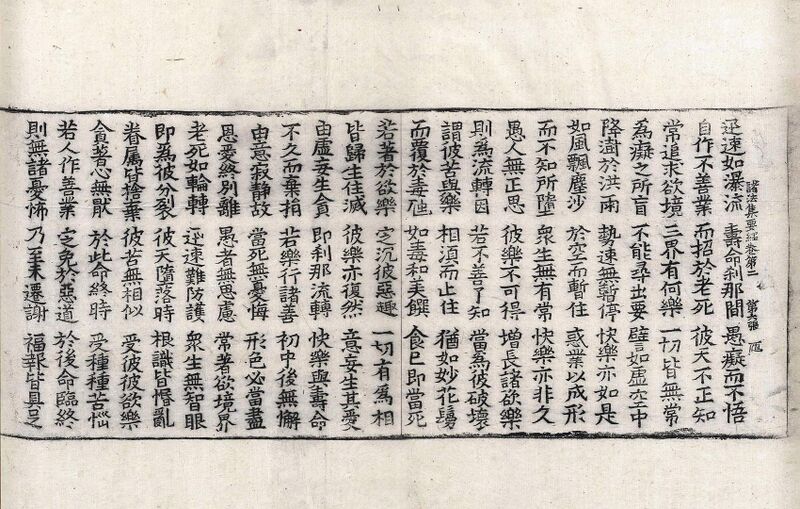 諸法集要經卷第二 第五張
迅速如瀑流 壽命剎那間 愚癡而不悟
自作不善業 而招於老死 彼天不正知
常追求欲境 三界有何樂 一切皆無常
為癡之所盲 不能尋出要 譬如虛空中
降澍於洪雨 勢速無暫停 快樂亦如是
如風飄塵沙 於空而暫住 惑業以成形
而不知所墮 衆生無有常 快樂亦非久
愚人無正思 彼樂不可得 增長諸欲樂
則為流轉因 若不善了知 當為彼破壞
謂彼苦與樂 相須而止住 猶如妙花鬘
而覆於毒虵 如毒和美饌 食已即當死
若著於欲樂 定沉彼惡趣 一切有為相
皆歸生住滅 彼樂亦復然 意妄生其愛
由虛妄生貪 即剎那流轉 快樂與壽命
不久而棄捐 若樂行諸善 初中後無懈
由意寂靜故 當死無憂悔 形色必當盡
恩愛終別離 愚者無思慮 常著欲境界
老死如輪轉 迅速難防護 衆生無智眼
即為彼分裂 彼天墮落時 根識皆惛亂
眷屬皆捨棄 彼苦無相似 受彼彼欲樂
貪著心無猒 於此命終時 受種種苦惱
若人作善業 定免於惡道 於後命臨終
則無諸憂怖 乃至未遷謝 福報皆具足